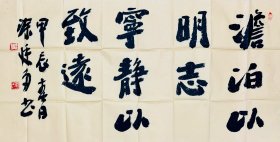 澹泊以
明志
寧静以
致遠
甲辰春月